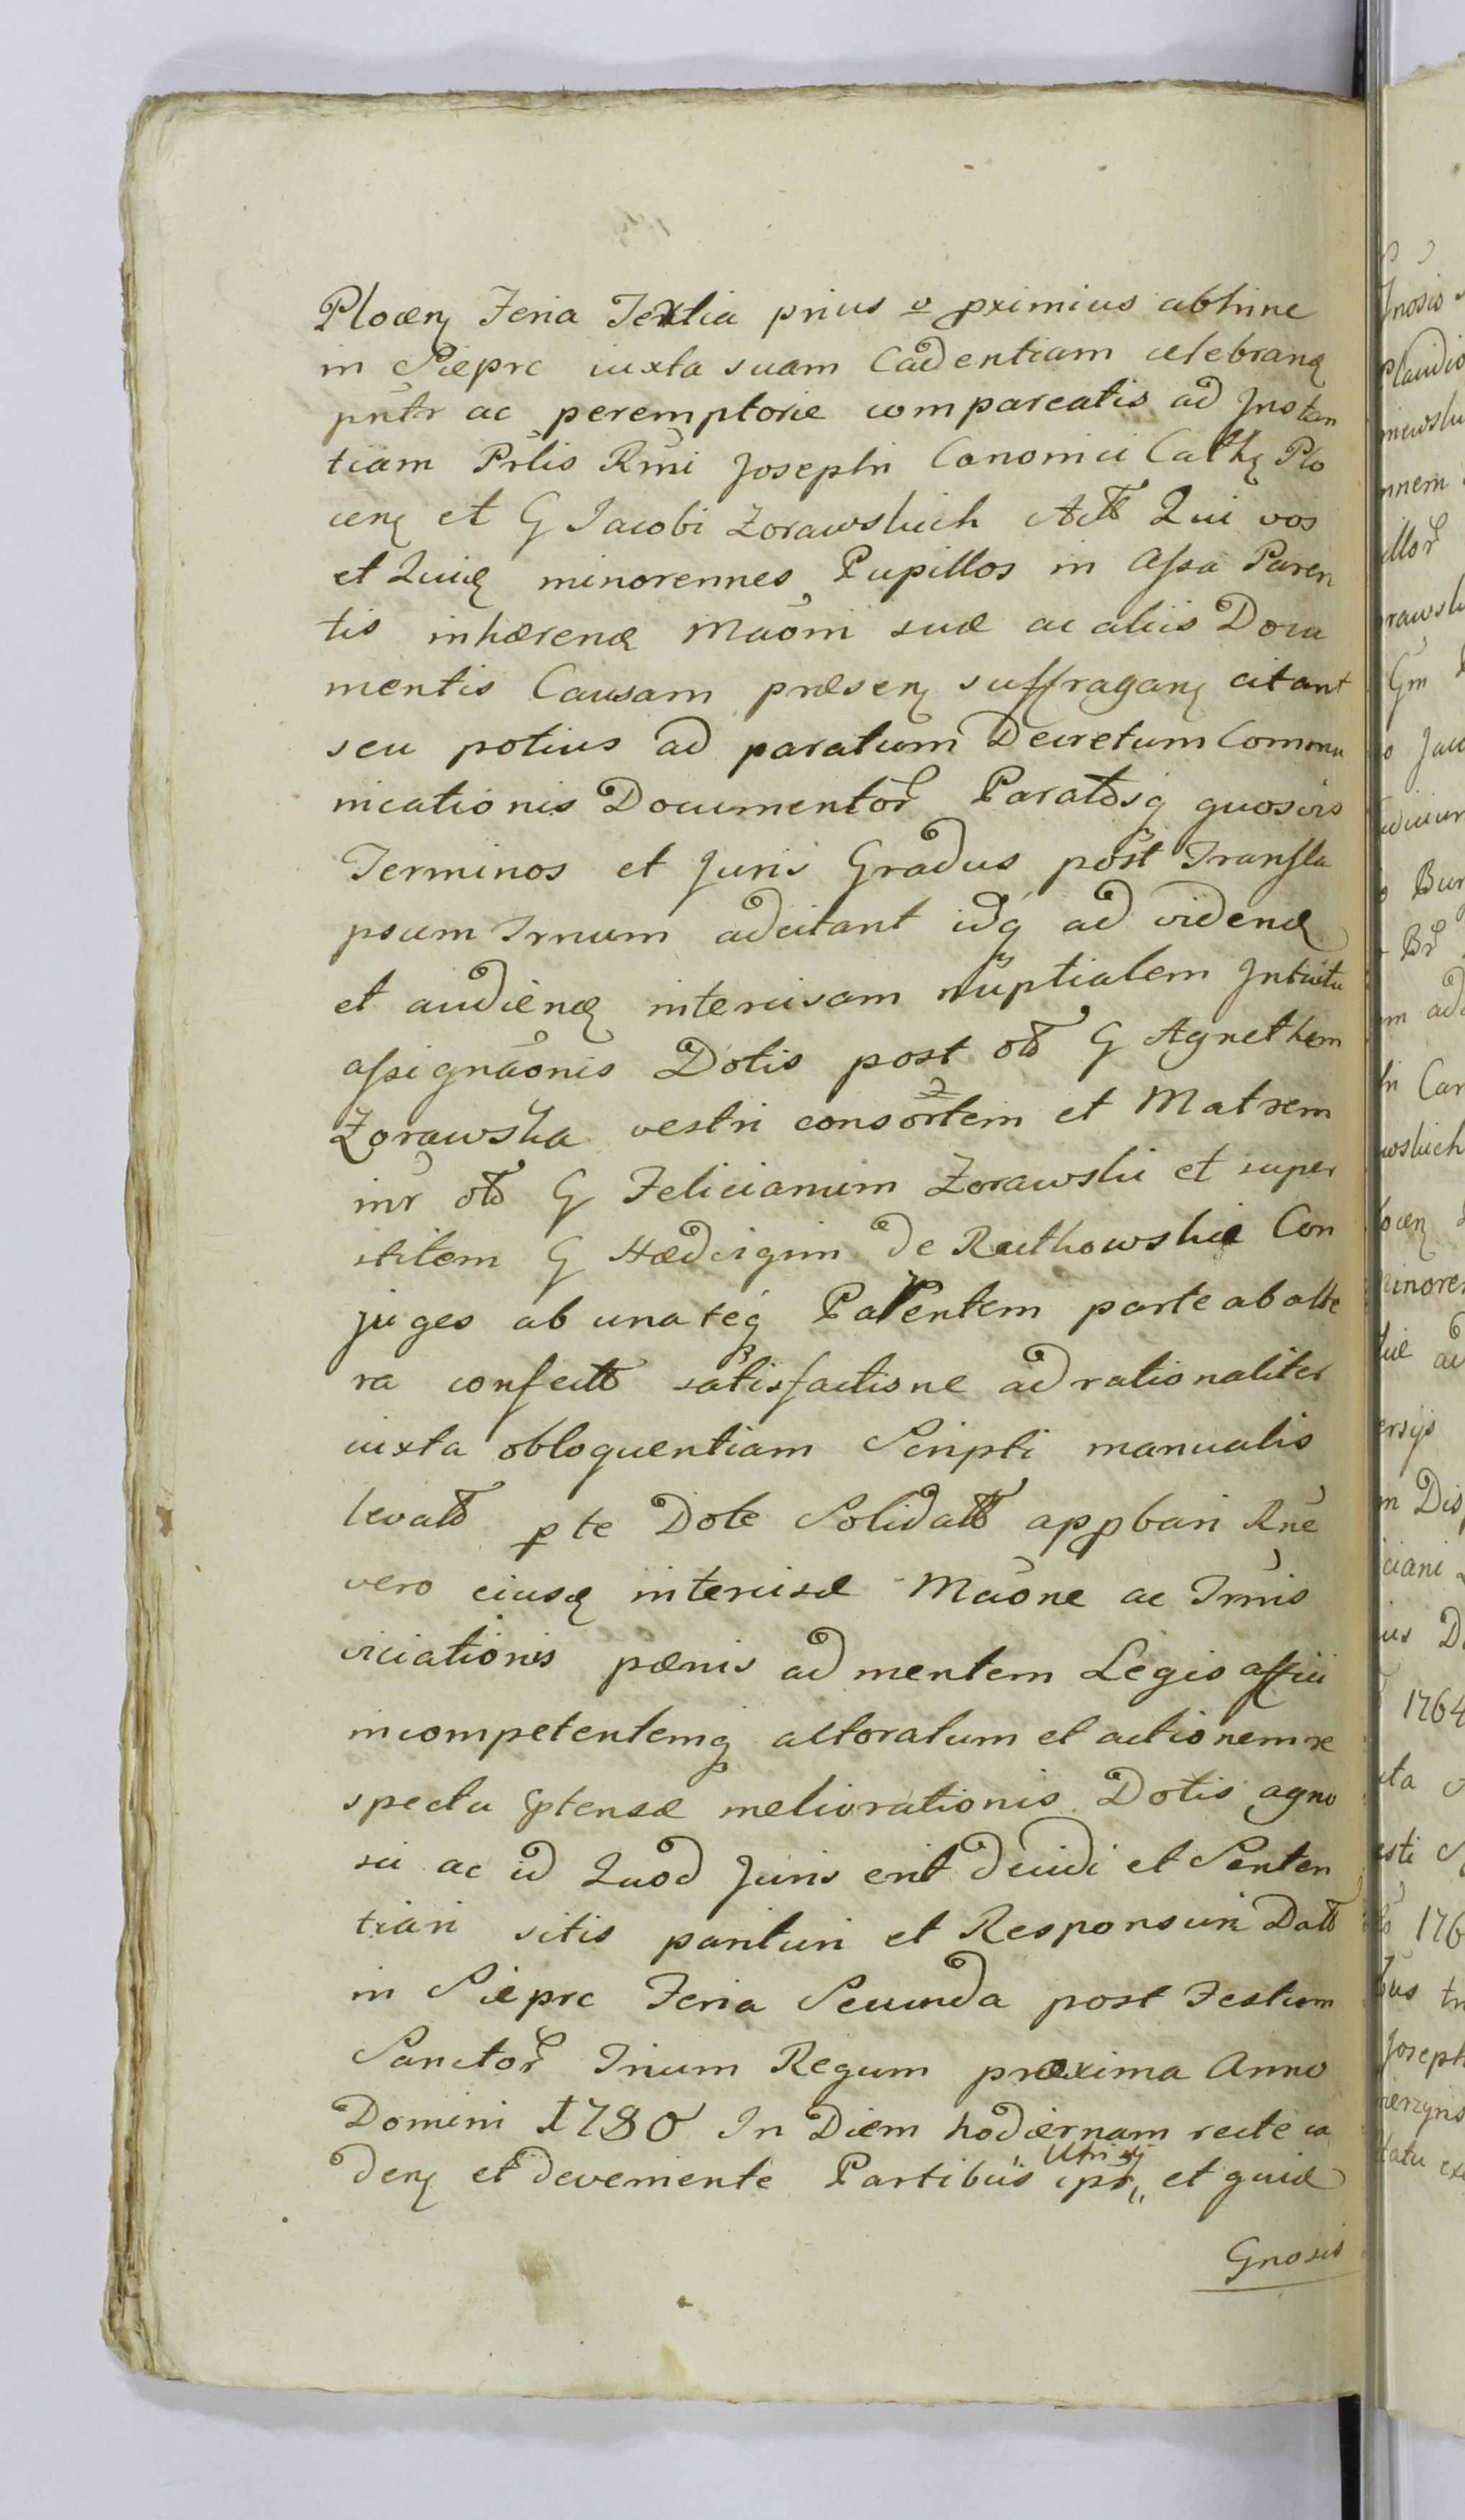 Plocen Feria Tertia prius v pximius abhinc
in Sieprc iuxta suam Cadentiam celebran
pntr ac peremptorie compareatis ad Jnstan
tiam Prlis Rmi Josephi Canonici Cathe Plo
cen et G Jacobi Zorawskich Actt Qui vos
et Quide minorennes Pupillos in assa Paren
tis inhærend Maõni suæ ac aliis Docu
mentis Causam præsen suffragan citant
seu potius ad paratum Decretum Commu
nicationis Documentor Paratosq quosvis
Terminos et Juris Gradus post Transla
psum Trnum adcitant idq ad vidend
et audiend intercisam nuptialem Jntuitu
assignãonis Dotis post otb G Agnethem
Zorawska vestri consortem et Matrem
inr otb G Felicianum Zorawski et super
stitem G Hædvigim de Rutkowskie Con
juges ab una teq Parentem parte ab alte
ra confectt satisfactione ad rationaliter
iuxta obloquentiam Scripti manualis
levatt pte Dote Solidatt appbari Rne
vero eiusd intercisæ Maõne ac Trnis
viciationis pænis ad mentem Legis affici
incompetentemq actoratum et actionem re
spectu ptensæ meliorationis Dotis agno
sci ac id Quod Juris erit decidi et Senten
tiari sitis parituri et Responsuri Datt
in Sieprc Feria Secunda post Festum
Sanctor Trium Regum proxima Anno
Domini 1780 In Diem hodiernam recte ca
den et deveniente Partibus Utrisq ipr et quid
Gnosis